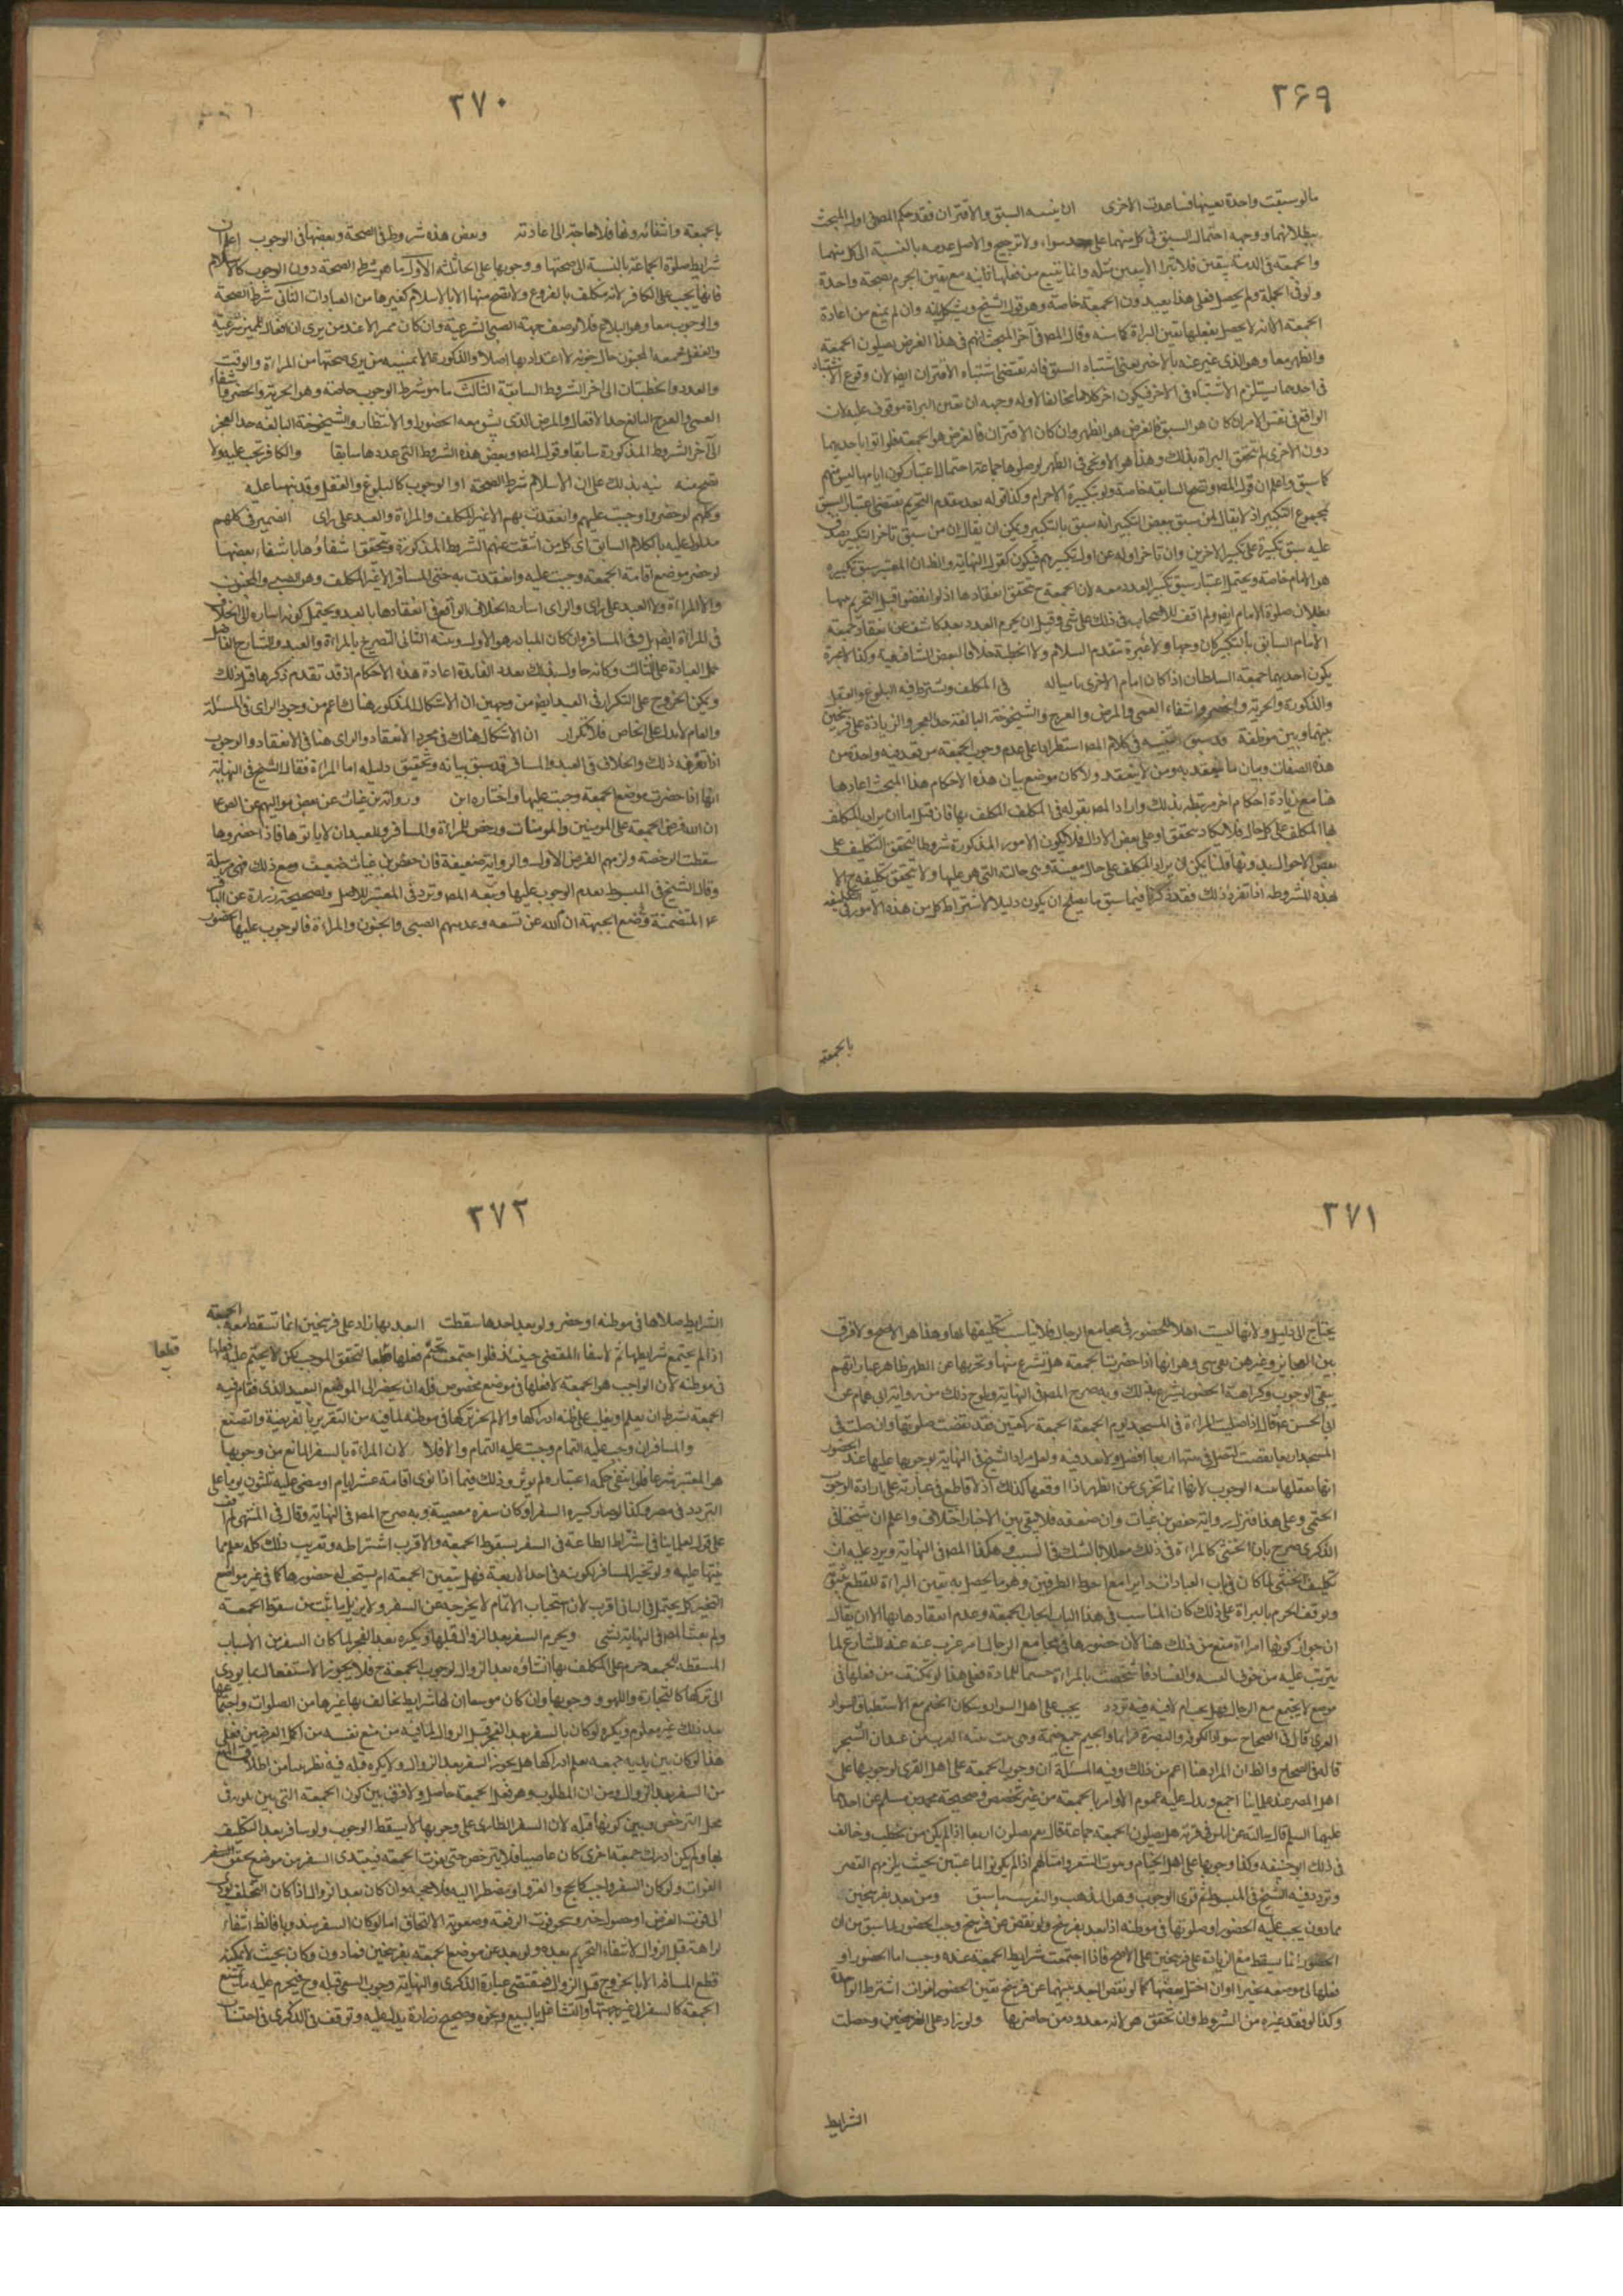 ٣۶٩
مالو سبقت واحدة بعينها فساعدت الاخرى ان يشتبه السبق والاقتران فقد حكم المصنف اول المبحث
ببطلانهما ووجهه احتمال السبق في كل منهما على حد سواء ولا ترجيح والاصل عدمه بالنسبة الى كل منهما
والجمعة في الذمة بيقين فلا تبرأ الا بيقين مثله وانما يتبع من فعلها ثانيه مع يقين الجزم بصحة واحدة
ولو في الجملة ولم يحصل فعلى هذا يعيدون الجمعة خاصة وهو قول الشيخ ويشكل بانه وان لم يمنع من اعادة
الجمعة الا انه لا يحصل بفعلها يقين البراءة كما سنبينه وقال المصنف في آخر المبحث انهم في هذا الفرض يصلون الجمعة
والظهر معا وهو الذي عبر عنه بالاخير يعني اشتباه السبق فانه يقتضي اشتباه الاقتران ايضا لان وقوع الاشتباه
في احدهما يستلزم الاشتباه في الاخر فيكون اخر كلامه مخالفا لاوله ووجهه ان يقين البراءة موقوف عليه لان
الواقع في نفس الامر ان كان هو السبق فالفرض هو الظهر وان كان الاقتران فالفرض هو الجمعة فلو اتوا باحديهما
دون الاخرى لم تتحقق البراءة بذلك وهذا هو الاقوى
كما سبق واعلم ان قول المصنف وتصح السابقة خاصة ولو بتكبيرة الاحرام وكذا قوله بعد مقدم التحريم يقتضي اعتبار السبق
بمجموع التكبير اذ لا يقال لمن سبق ببعض التكبير انه سبق بالتكبير ويمكن ان يقال ان من سبق تاخر التكبير يصدق
عليه سبق تكبيره على تكبير الاخرين وان تاخر اوله عن اول تكبيرهم فيكون كقول النهاية والظ ان المعتبر سبق تكبيره
هو الامام خاصة ويحتمل اعتبار سبق تكبير العدد معه لان الجمعة ح تحقق انعقادها اذ لو انفضوا قبل التحريم معها
بطلان صلوة الامام ايضا ولم اقف للاصحاب في ذلك على شيء وقيل ان يحرم العدد بعد كاشف عن انعقاد جمعة
الامام السابق بالتكبير كان وجها ولا عبرة بتقدم السلام ولا الخطبة خلافا لبعض الشافعية وكذا لا عبرة
بكون احديهما جمعة السلطان اذا كان امام الاخرى باسياله في المكلف ويشترط فيه البلوغ والعقل
والذكورة والحرية والحضر وانتفاء العمى والمرض والعرج والشيخوخة البالغة حد العجز والزيادة على فرسخين
بينها وبين موظفه قد سبق التنبيه في كلام المصنف استطرادا على عدم وجوب الجمعة من تقدمه واحدة من
هذه الصفات وبيان ما ينعقد به ومن لا ينعقد ولا كان موضع بيان هذه الاحكام هذا المبحث اعادها
هنا مع زيادة احكام اخر مرتبطة بذلك واراد المصنف بقوله في المكلف المكلف بها فان قيل اما ان يراد المكلف
بها المكلف على كل حال فلا يكاد يتحقق او على بعض الاحوال فلا يكون الامور المذكورة شروطا لتحقق التكليف على
بعض الاحوال بدونها قلنا يمكن ان يراد المكلف على حال معينة وهي حالته التي هو عليها ولا يتحقق تكليفه ح الا
بهذه الشروط اذا تقرر ذلك فقد ذكرنا فيما سبق ما يصلح ان يكون دليلا لاشتراط كل من هذه الامور في التكليف
بالجمعة
٢٧٠
بالجمعة وانتفائه ونها فلا حاجة الى اعادته وبعض هذه شروط في الصحة وبعضها في الوجوب اعلم ان
شرايط صلوة الجماعة بالنسبة الى صحتها ووجوبها على انحاء ثلثة الاول ما هو شرط الصحة دون الوجوب كالاسلام
فانها تجب على الكافر لانه مكلف بالفروع ولا تصح منها الا بالاسلام كغيرها من العبادات الثاني شرط الصحة
والوجوب معا
والعقل فجمعه المجنون حال جنونه لا اعتداد بها اصلا والذكورة
والعدد والخطبتان الى اخر الشروط السابقة الثالث ما هو شرط الوجوب خاصة وهو الحرية والحضر وانتفاء
العمى والعرج البالغ حد الاقعاد والمرض الذي يشق معه الحضور او الاستنظار والشيخوخة البالغة حد العجز
الى آخر الشروط المذكورة سابقا وقول المصنف وبعض هذه الشروط التي عددها سابقا والكافر تجب عليه ولا
تصح منه نبه بذلك على ان الاسلام شرط الصحة او الوجوب كالبلوغ والعقل وقد نبهنا عليه
وكلهم لو حضروا وجبت عليهم وانعقدت بهم الا غير المكلف والمراة والعبد على راى الضمير في كلهم
مدلول عليه بالكلام السابق اى كل من انتفت عنهم الشروط المذكورة ويتحقق انتفاؤها بانتفاء بعضها
لو حضر موضع اقامة الجمعة وجبت عليه وانعقدت به حتى المسافر الا غير المكلف وهو الصبي والمجنون
والا المراة والا العبد على راى والراى اشارة الخلاف الواقع في انعقادها بالعبد ويحتمل كونه اشارة الى الخلاف
في المراة ايضا بل وفي المسافر وان كان المتبادر هو الاول
على العبادة على الثالث وكانه حاول بذلك بعدد الفائدة اعادة هذه الاحكام اذ قد تقدم ذكرها قبل ذلك
ويمكن الخروج على التكرار في العبد ايضا من وجهين ان الاشكال المذكور هناك اعم من وجود الراى في المسئلة
والعام لا يدل على الخاص فلا تكرار ان الاشكال هناك في مجرد الانعقاد والراى هنا في الانعقاد والوجوب
اذا تقرر ذلك والخلاف في العبد والمسافر قد سبق بيانه وتحقيق دليله اما المراة فقال الشيخ في النهاية
انها اذا حضرت موضع الجمعة وجبت عليها واختاره ابن ورواية بن غياث عن بعض مواليهم عن الص ع
ان الله فرض الجمعة على المومنين والمومنات ورخص للمراة والمسافر والعبد ان لا ياتوها فاذا حضروها
سقطت الرخصة ولزمهم الفرض الاول والرواية ضعيفة فان حفص بن غياث ضعيف ومع ذلك فهي مرسلة
وقال الشيخ في المبسوط بعدم الوجوب عليها وتبعه المصنف وتردد في المعتبر للاصل ولصحيحة زرارة عن الباقر
ع المتضمنة وضع الجمعة ان الله عن تسعة وعد منهم الصبي والمجنون والمراة فالوجوب عليها بحضور
٣٧١
يحتاج الى دليل ولانها ليست اهلا للحضور في مجامع الرجال فلا يناسب تكليفها بها وهذا هو الاصح ولا فرق
بين العجايز وغيرهن بقي شيء وهو انها اذا حضرت الجمعة هل تشرع منها وتجزيها عن الظهر ظاهر عباراتهم
بنفي الوجوب وكراهة الحضور يشرع بذلك وبه صرح المصنف في النهاية ويلوح ذلك من رواية ابي همام عن
ابي الحسن ع قال اذا صليت المراة في المسجد يوم الجمعة الجمعة ركعتين فقد نقصت صلوتها وان صلت في
المسجد اربعا نقصت لتصل في بيتها اربعا افضل ولعل مراد الشيخ في النهاية بوجوبها عليها عند الحضور
انها بفعلها بنية الوجوب لانها انما تجزي عن الظهر اذا اوقعها كذلك اذ لا قاطع في عبارته على ارادة الوجوب
الحتمي وعلى هذا فتنزل رواية حفص بن غياث وان ضعفه فلا يبقى بين الاخبار اختلاف واعلم ان شيخنا في
الذكرى صرح بان الخنثى كالمراة في ذلك معللا بالشك في السبب وهكذا المصنف في النهاية ويرد عليه ان
تكليف الخنثى لما كان في باب العبادات دايرا مع احوط الطرفين وهو ما يحصل به يقين البراءة
وتوقف الجزم بالبراءة على ذلك كان المناسب في هذا الباب ايجاب الجمعة وعدم انعقادها بها الا ان يقال
ان جواز كونها امراة منع من ذلك هنا لان حضورها في مجامع الرجال امر مرغوب عنه عند الشارع لما
يترتب عليه من خوف الفتنة والفساد
موضع لا يجتمع مع الرجال فهل يجب ام لا فيه تردد يجب على اهل السواد وسكان الخيم مع الاستيطان السواد
القرى قال في الصحاح سواد الكوفة والبصرة قراهما والخيم جمع خيمة وهي بيت تبنيه العرب من عيدان الشجر
قاله في الصحاح والظ ان المراد هنا اعم من ذلك وفيه المسئلة ان وجوب الجمعة على اهل القرى لوجوبها على
اهل المصر عند علمائنا اجمع ويدل عليه عموم الاوامر بالجمعة من غير تخصيص وصحيحة محمد بن مسلم عن احدهما
عليهما السلم قال سالته عن اناس في قرية هل يصلون الجمعة جماعة قال نعم يصلون اربعا اذا لم يكن من يخطب وخالف
في ذلك ابو حنيفة وكذا وجوبها على اهل الخيام وبيوت الشعر وامثالهم اذا لم يكونوا ظاعنين بحيث يلزمهم القصر
وتردد فيه الشيخ في المبسوط ثم قوى الوجوب وهو المذهب والتقريب ما سبق ومن بعد بفرسخين
فما دون يجب عليه الحضور او صلوتها في موطنه اذا بعد بفرسخ ولو نقص عن فرسخ وجب الحضور لما سبق من ان
الحضور انما يسقط مع الزيادة على فرسخين على الاصح فاذا اجتمعت شرايط الجمعة عنده وجب اما الحضور او
فعلها في موضعه تخييرا وان اختل بعضها كما لو نقص البعد بينهما عن فرسخ يتعين الحضور لفوات اشتراط الوحدة
وكذا لو فقد غيره من الشروط وان تحقق هو لانه معدود من حاضريها ولو زاد على الفرسخين وحصلت
الشرايط
٣٧٢
الشرايط صلاها في موطنه او حضر ولو بعد احدها سقطت البعد بها زاد على فرسخين انما تسقط معه الجمعة
اذا لم يجتمع شرايطها ثم لانتفاء المقتضي حينئذ فلو اجتمعت تحتم فعلها قطعا لتحقق الموجب لكن لا يتحتم عليه فعلها
قطعا
في موطنه لان الواجب هو الجمعة لا فعلها في موضع مخصوص فله ان يحضر الى الموضع البعيد الذي تقام فيه
الجمعة بشرط ان يعلم او يغلب على ظنه ادراكها والا لم يجز تركها في موطنه لما فيه من التغرير بالفريضة والتصنع
والمسافر ان وجب عليه التمام وجبت عليه التمام والافلا لان المراد بالسفر المانع من وجوبها
هو المعتبر شرعا فلو انتفى حكمه اعتباره لم يؤثر وذلك فيما اذا نوى اقامة عشرة ايام او مضى عليه ثلثون يوما على
التردد في مصر وكذا لو صار كثير السفر او كان سفره معصية وبه صرح المصنف في النهاية وقال في المنتهى لم اقف
على قول لعلمائنا في اشتراط الطاعة في السفر بسقوط الجمعة والاقرب اشتراطه وتقريب ذلك كله يعلم مما
نبهنا عليه ولو تخير المسافر لكونه في احد الاربعة فهل يتعين الجمعة ام يستحب له حضورها كما في غير مواضع
التخيير كل يحتمل والثاني اقرب لان استحباب الاتمام لا يخرجه عن السفر ولا يزيل ما ثبت من سقوط الجمعة
ولم يفت المصنف في النهاية بشيء ويحرم السفر بعد الزوال قبلها ويكره بعد الفجر لما كان السفر من الاسباب
المسقطة للجمعة حرم على المكلف بها انشاؤه بعد الزوال لوجوب الجمعة ح فلا يجوز الاشتغال بما يؤدي
الى تركها كالتجارة واللهو ووجوبها وان كان موسعا
بعد ذلك غير معلوم ويكره لو كان بالسفر بعد الفجر قبل الزوال لما فيه من منع نفسه من اكمل الفرضين فعلى
هذا لو كان بين يديه جمعة يعلم ادراكها هل يجوز السفر بعد الزوال ولا يكره قبله فيه نظر ينشا من اطلاق المنع
من السفر بعد الزوال ومن ان المطلوب وهو فعل الجمعة حاصل ولا فرق بين كون الجمعة التي بين يديه في
محل الترخص وبين كونها قبله لان السفر الطارى على وجوبها لا يسقط الوجوب ولو سافر بعد التكليف
بها ولم يكن ادراك جمعة اخرى كان عاصيا فلا يترخص حتى يفوت الجمعة فيبتدى السفر من موضع تحقق السفر
الفوات ولو كان السفر واجبا كالحج والغزو او مضطرا اليه فلا حرمة وان كان بعد الزوال اذا كان التخلف يؤدي
الى فوت الغرض او حصول ضرر ونحو فوت الرفقة وصعوبة الالتحاق
لراهة قبل الزوال لانتفاء التحريم بعده ولو بعد عن موضع الجمعة بفرسخين فما دون وكان بحيث لا يمكنه
قطع المسافة الا بالخروج قبل الزوال فمقتضى عبارة الذكرى والنهاية وجوب السعي قبله وح فيحرم عليه ما يمنع
الجمعة كالسفر الى غير جهتها والتشاغل بالبيع ونحوه وصحيح زرارة يدل عليه وتوقف في الذكرى في احتساب